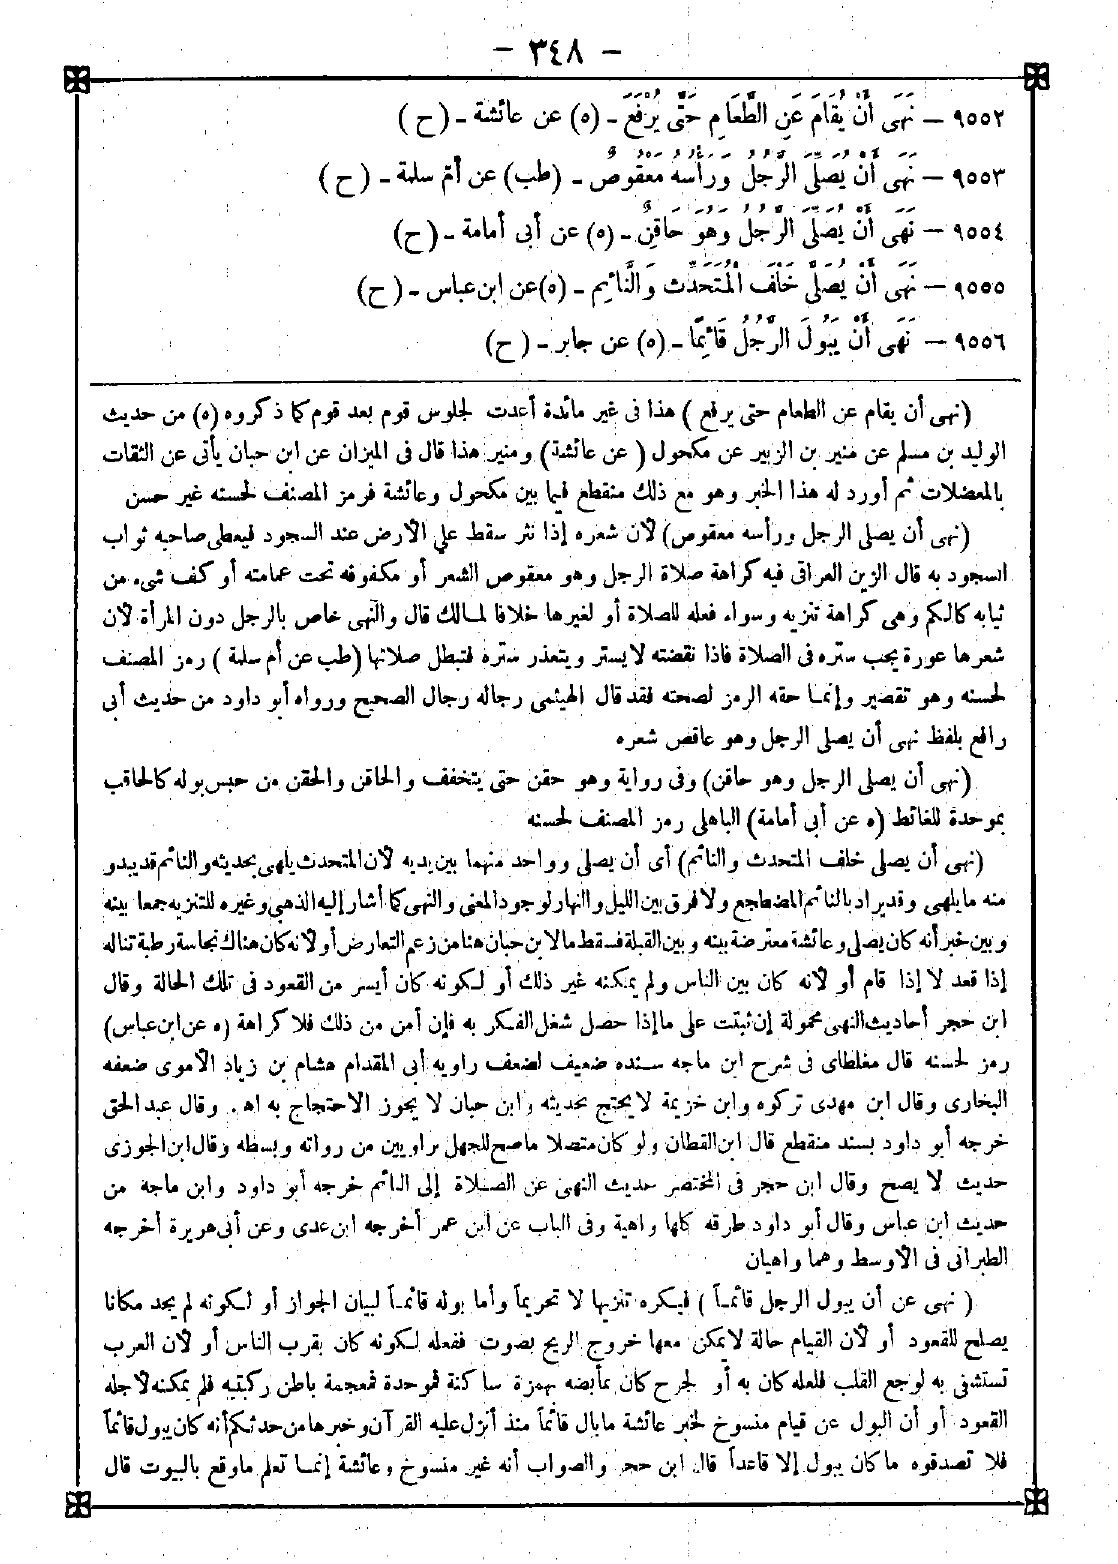 - ٣٤٨ -
٩٥٥٢ - نَهَى أَنْ يُقَامَ عَنِ الطَّعَامِ حَتَّى يُرْفَعَ - (ه) عن عائشة - (ح)
٩٥٥٣ - نَهَى أَنْ يُصَلِّىَ الرَّجُلُ وَرَأْسُهُ مَعْقُوصٌ - (طب) عن أم سلمة - (ح)
٩٥٥٤ - نَهَى أَنْ يُصَلِّىَ الرَّجُلُ وَهُوَ حَاقِنٌ - (ه) عن أبى أمامة - (ح)
٩٥٥٥ - نَهَى أَنْ يُصَلَّى خَلْفَ الْمُتَحَدِّث وَالنَّائِمِ - (ه) عن ابن عباس - (ح)
٩٥٥٦ - نَهَى أَنْ يَبُولَ الرَّجُلُ قَائِمًا - (ه) عن جابر - (ح)
(نهى أن يقام عن الطعام حتى يرفع) هذا فى غير مائدة أعدت لجلوس قوم بعد قوم كما ذكروه (ه) من حديث
الوليد بن مسلم عن منير بن الزبير عن مكحول (عن عائشة) ومنير هذا قال فى الميزان عن ابن حبان يأتى عن الثقات
بالمعضلات ثم أورد له هذا الخبر وهو مع ذلك منقطع فيما بين مكحول وعائشة فرمز المصنف لحسنه غير حسن
(نهى أن يصلى الرجل ورأسه معقوص) لأن شعره إذا نثر سقط على الأرض عند السجود فيعطى صاحبه ثواب
السجود به قال الزين العراقى فيه كراهة صلاة الرجل وهو معقوص الشعر أو مكفوفه تحت عمامته أو كف شىء من
ثيابه كالكم وهى كراهة تنزيه وسواء فعله للصلاة أو لغيرها خلافا لمالك قال والنهى خاص بالرجل دون المرأة لأن
شعرها عورة يجب ستره فى الصلاة فاذا نقضته لا يستر ويتعذر ستره فتبطل صلاتها (طب عن أم سلمة) رمز المصنف
لحسنه وهو تقصير وإنما حقه الرمز لصحته فقد قال الهيثمى رجاله رجال الصحيح ورواه أبو داود من حديث أبى
رافع بلفظ نهى أن يصلى الرجل وهو عاقص شعره
(نهى أن يصلى الرجل وهو حاقن) وفى رواية وهو حقن حتى يتخفف والحاقن والحقن من حبس بوله كالحاقب
بموحدة للغائط (ه عن أبى أمامة) الباهلى رمز المصنف لحسنه
(نهى أن يصلى خلف المتحدث والنائم) أى أن يصلى وواحد منهما بين يديه لأن المتحدث يلهى بحديثه والنائم قد يبدو
منه ما يلهى وقد يراد بالنائم المضطجع ولا فرق بين الليل والنهار لوجود المعنى والنهى كما أشار إليه الذهبى وغيره للتنزيه جمعا بينه
وبين خبر أنه كان يصلى وعائشة معترضة بينه وبين القبلة فسقط ما لابن حبان هنا من زعم التعارض أو لأنه كان هناك نجاسة رطبة تناله
إذا قعد لا إذا قام أو لأنه كان بين الناس ولم يمكنه غير ذلك أو لكونه كان أيسر من القعود فى تلك الحالة وقال
ابن حجر أحاديث النهى محمولة إن ثبتت على ما إذا حصل شغل الفكر به فإن أمن من ذلك فلا كراهة (ه عن ابن عباس)
رمز لحسنه قال مغلطاى فى شرح ابن ماجه سنده ضعيف لضعف راويه أبى المقدام هشام بن زياد الأموى ضعفه
البخارى وقال ابن مهدى تركوه وابن خزيمة لا يحتج بحديثه وابن حبان لا يجوز الاحتجاج به اه. وقال عبد الحق
خرجه أبو داود بسند منقطع قال ابن القطان ولو كان متصلا ما صح للجهل براويين من رواته وبسطه وقال ابن الجوزى
حديث لا يصح وقال ابن حجر فى المختصر حديث النهى عن الصلاة إلى النائم خرجه أبو داود وابن ماجه من
حديث ابن عباس وقال أبو داود طرقه كلها واهية وفى الباب عن ابن عمر أخرجه ابن عدى وعن أبى هريرة أخرجه
الطبرانى فى الأوسط وهما واهيان
(نهى عن أن يبول الرجل قائمـاً) فيكره تنزيها لا تحريماً وأما بوله قائمـاً لبيان الجواز أو لكونه لم يجد مكانا
يصلح للقعود أو لأن القيام حالة لا يمكن معها خروج الريح بصوت ففعله لكونه كان بقرب الناس أو لأن العرب
تستشفى به لوجع القلب فلعله كان به أو لجرح كان بمأبضه بهمزة ساكنة فموحدة فمعجمة باطن ركبتيه فلم يمكنه لأجله
القعود أو أن البول عن قيام منسوخ لخبر عائشة ما بال قائماً منذ أنزل عليه القرآن وخبرها من حدثكم أنه كان يبول قائماً
فلا تصدقوه ما كان يبول إلا قاعداً قال ابن حجر والصواب أنه غير منسوخ وعائشة إنمـا تعلم ما وقع بالبيوت قال